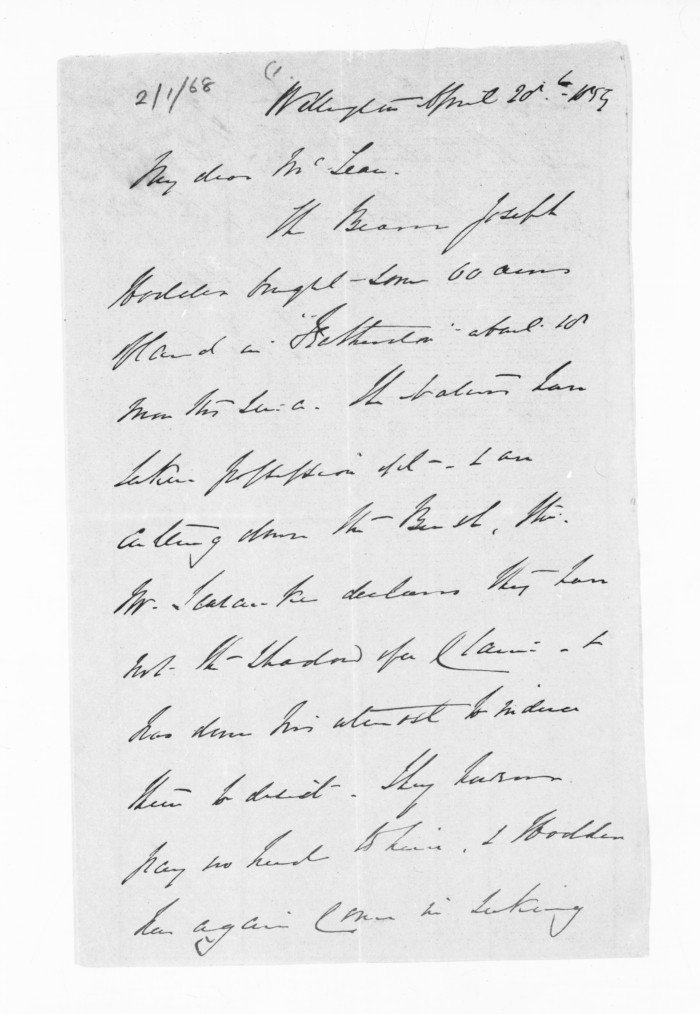 2/1/68
Wellington April 20th 1859
My dear McLean.
The Bearer Joseph
Hodder bought some 60 acres
of land in "Featherston" about 18
months since. The Natives have
taken possession of it - & are
cutting down the Bush, tho'
Mr. Searancke declares they have
not the shadow of a Claim - &
has done his utmost to induce
them to desist - They however
pay no heed to him, & Hodder
has again come in seeking